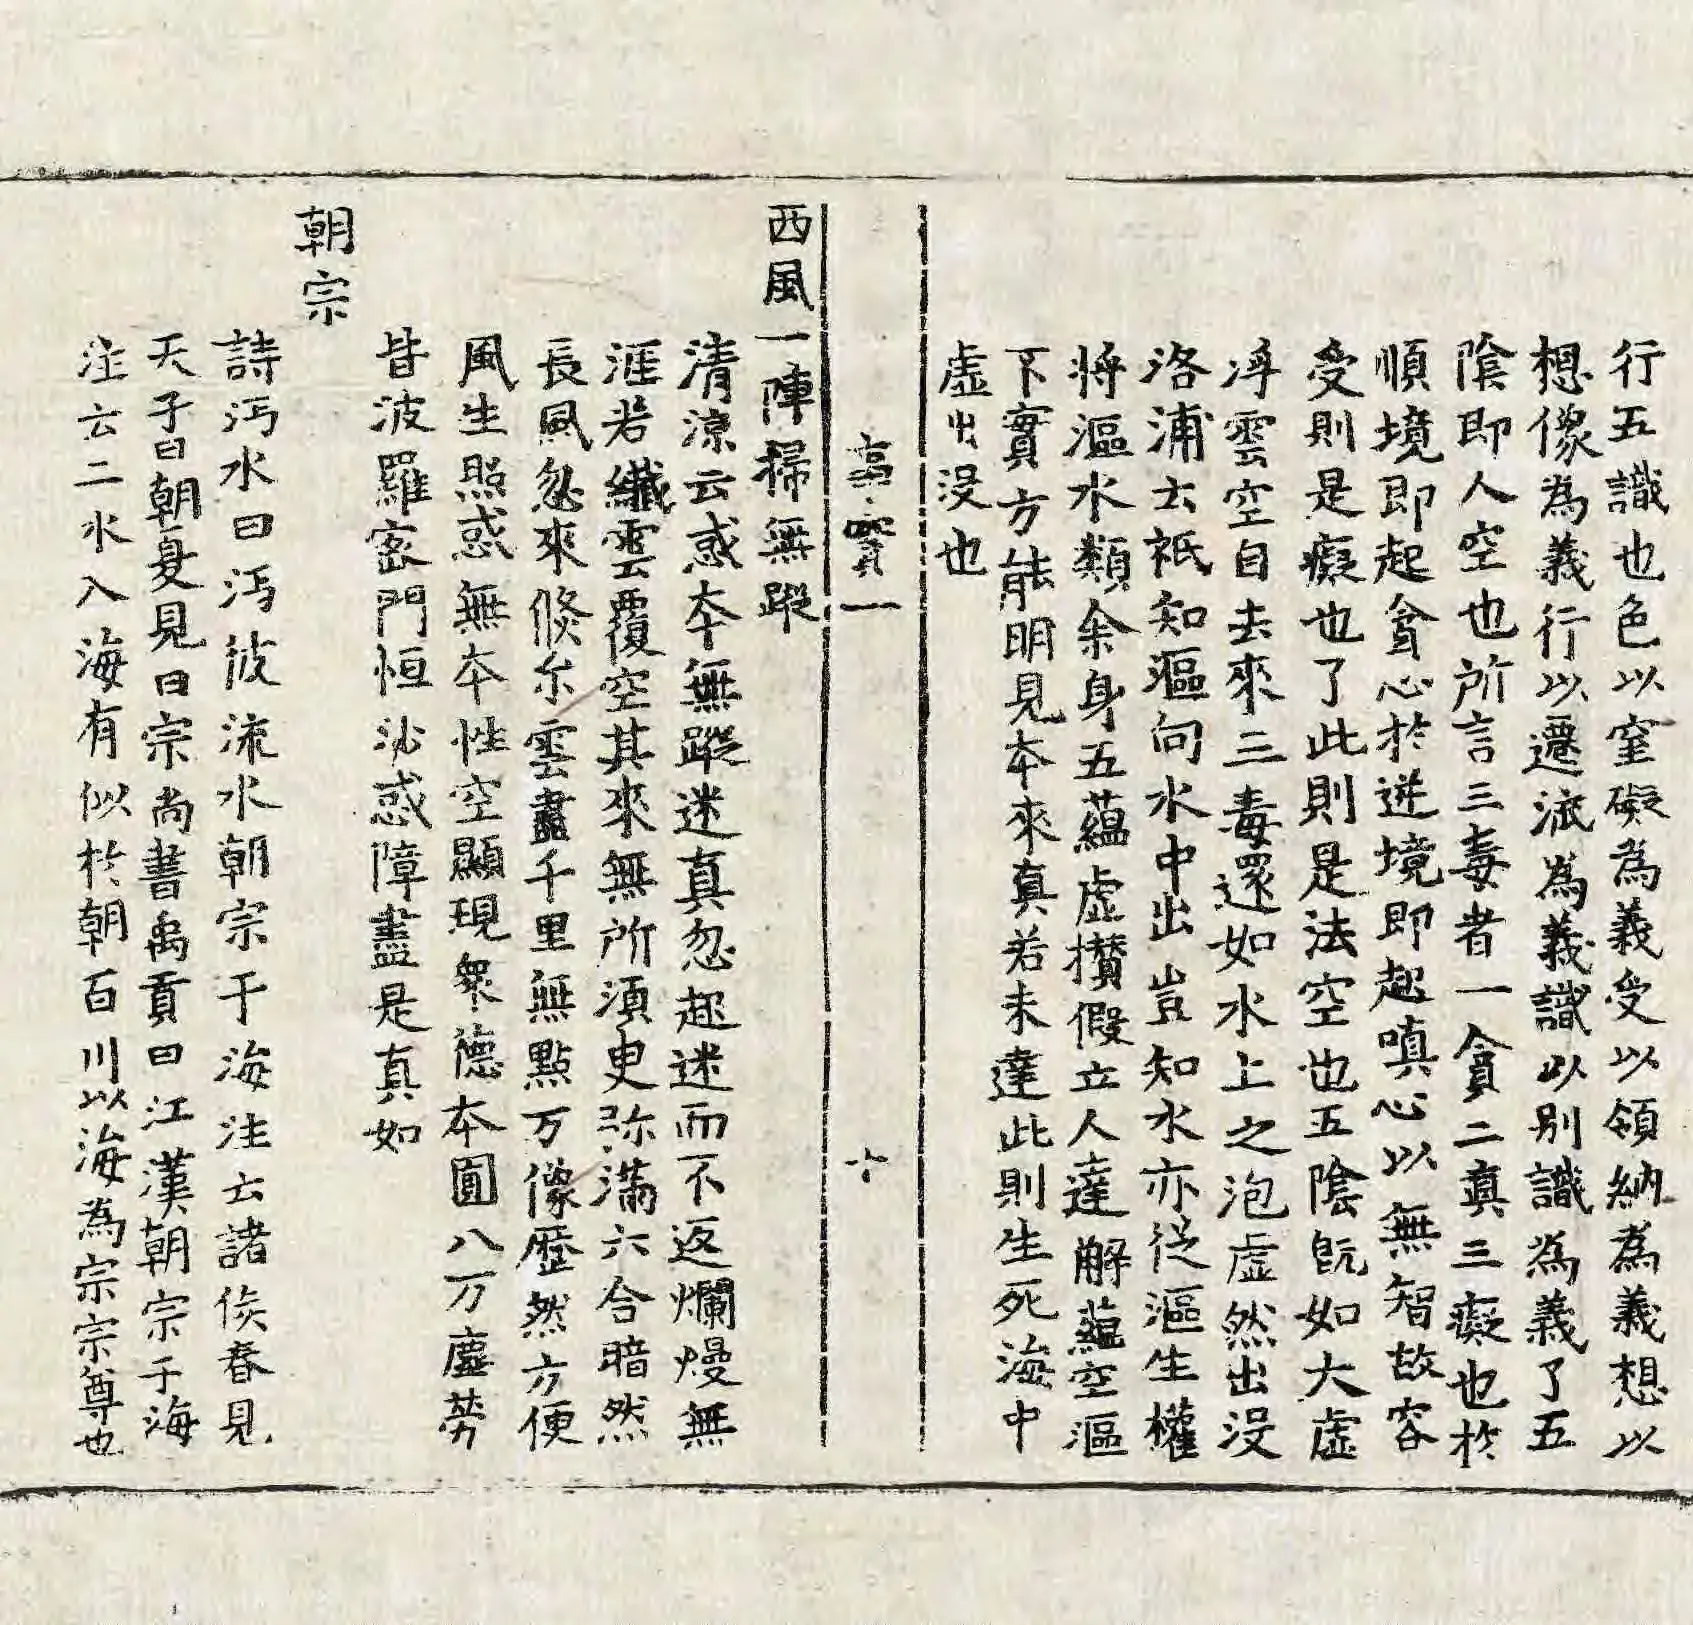 行五識也色以窒礙為義受以領納為義想以
想像為義行以遷流為義識以別識為義了五
陰即人空也所言三毒者一貪二真三癡也於
順境即起貪心於逆境即起嗔心以無智故容
受則是癡也了此則是法空也五陰既如大虛
浮雲空自去來三毒還如水上之泡虛然出沒
洛浦云祇知漚向水中出豈知水亦從漚生權
將漚水類余身五蘊虛攢假立人達解蘊空漚
不實方能明見本來真若未達此則生死海中
虛出沒也
事實一 十
西風一陣掃無蹤
清涼云惑本無蹤迷真忽起迷而不返爛熳無
涯若纖雲覆空其來無所須臾弥滿六合暗然
長風忽來倐尒雲盡千里無點万像歷然方便
風生照惑無本性空顯現衆德本圓八万塵勞
皆波羅密門恒沙惑障盡是真如
朝宗
詩沔水曰沔彼流水朝宗于海注云諸侯春見
天子曰朝夏見曰宗尚書禹貢曰江漢朝宗于海
注云二水入海有似於朝百川以海為宗宗尊也